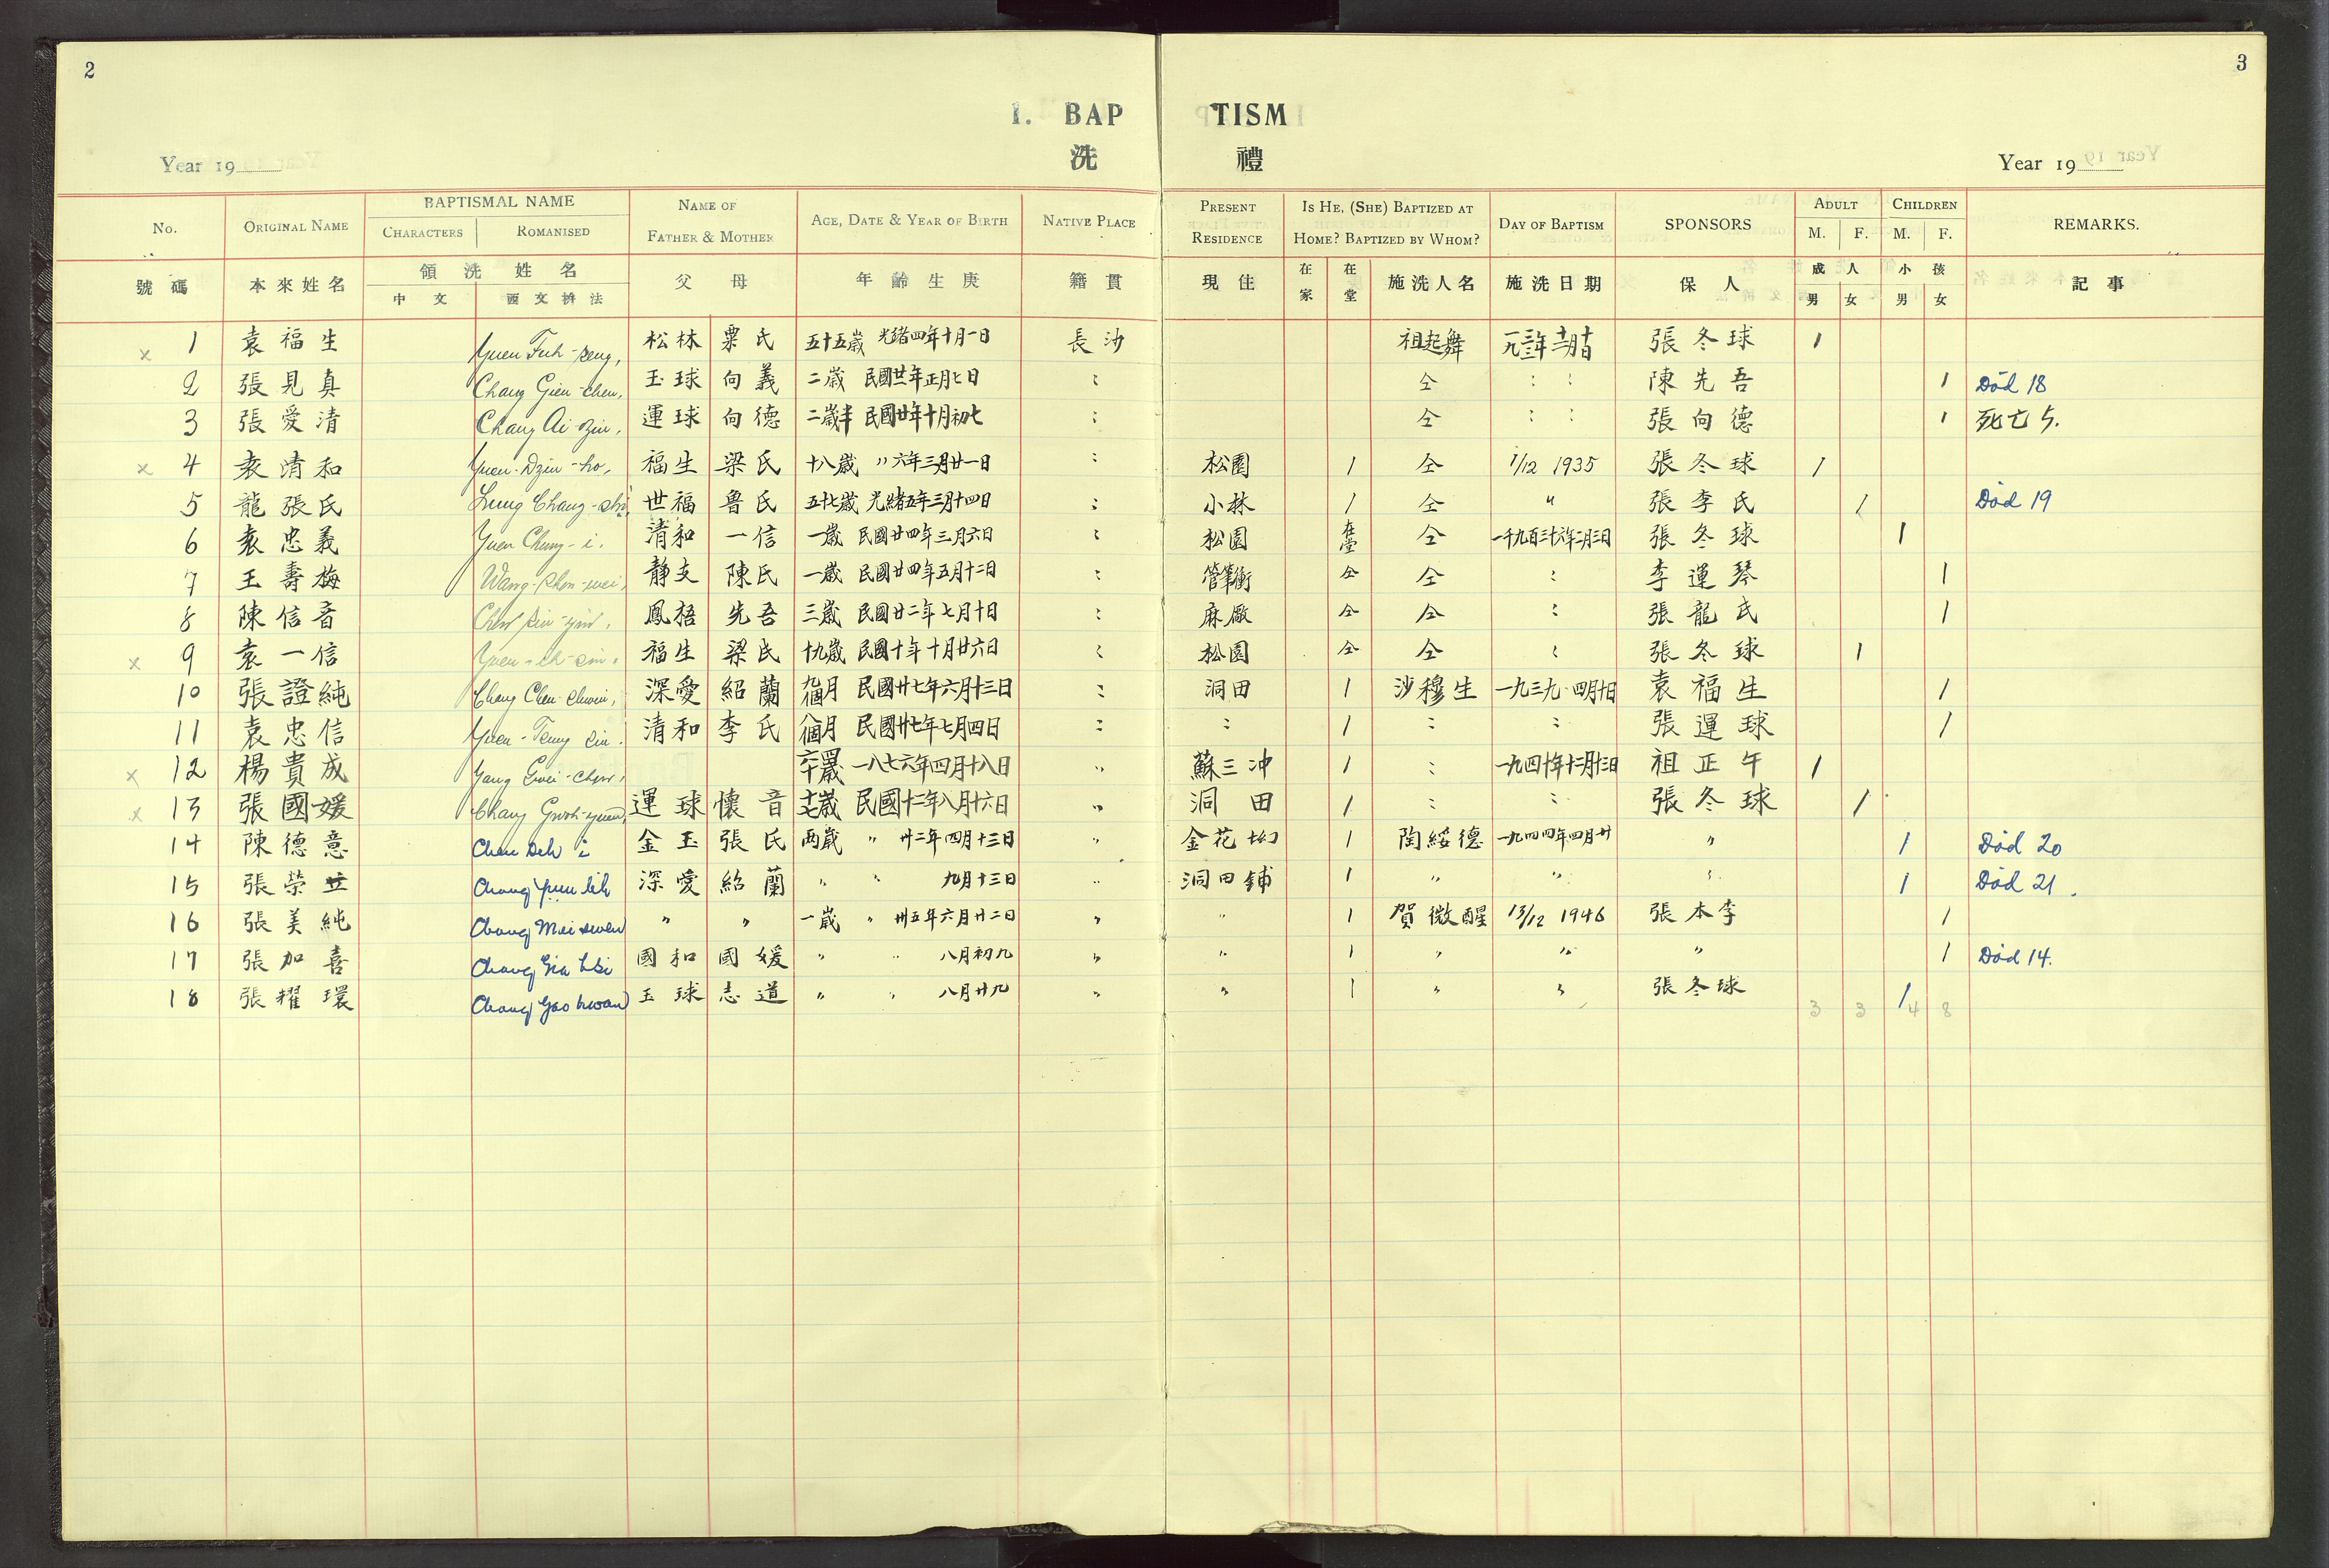 2
3
I. BAP TISM
洗 禮
Year 19
Year 19
No. ORIGINAL NAME BAPTISMAL NAME CHARACTERS ROMANISED NAME OF FATHER & MOTHER AGE, DATE & YEAR OF BIRTH NATIVE PLACE PRESENT RESIDENCE IS HE, (SHE) BAPTIZED AT HOME? BAPTIZED BY WHOM? DAY OF BAPTISM SPONSORS ADULT M. F. CHILDREN M. F. REMARKS.
號碼 本來姓名 領洗姓名 中文 西文拚法 父母 年齡生庚 籍貫 現住 在家 在堂 施洗人名 施洗日期 保人 成人 男 女 小孩 男 女 記事
x 1 袁福生 Yuen Fuh-seng, 松林 粟氏 五十五歲 光緒四年十月一日 長沙 祖起舞 張冬球 1
2 張見真 Chang Gien-chen, 玉球 向義 二歲 民國廿年正月七日 : 仝 : : 陳先吾 1 Död 18
3 張愛清 Chang Ai-dzin, 運球 向德 二歲半 民國廿年十月初七 : 仝 : : 張向德 1 死亡 5.
x 4 袁清和 Yuen-Dzin-ho, 福生 梁氏 十八歲 〃六年三月廿一日 : 松園 1 仝 1/12 1935 張冬球 1
5 龍張氏 Lung Chang-shi, 世福 魯氏 五十七歲 光緒五年三月十四日 : 小林 1 仝 〃 張李氏 1 Död 19
6 袁忠義 Yuen Chung-i. 清和 一信 一歲 民國廿四年三月六日 : 松園 在堂 仝 一千九百三十六年二月三日 張冬球 1
7 王壽梅 Wang-shou-mei, 靜支 陳氏 一歲 民國廿四年五月十二日 : 仝 仝 : 李運琴 1
8 陳信音 Chen sin-yin, 鳳梧 先吾 三歲 民國廿二年七月十日 : 麻廠 仝 仝 : 張龍氏 1
x 9 袁一信 Yuen-ih-sin, 福生 梁氏 十九歲 民國十年十月廿六日 : 松園 仝 仝 : 張冬球 1
10 張證純 Chang Chen-chwen, 深愛 紹蘭 九個月 民國廿七年六月十三日 : 洞田 1 沙穆生 一九三九·四月十日 袁福生 1
11 袁忠信 Yuen-Tsung sin. 清和 李氏 八個月 民國廿七年七月四日 : : 1 : : 張運球 1
x 12 楊貴成 Yang Gwei-chen, 六十四歲 一八七六年四月十八日 〃 蘇三冲 1 : 一九四十年十二月十三日 祖正午 1
x 13 張國媛 Chang Gwoh-yuen, 運球 懷音 十七歲 民國十二年八月十六日 〃 洞田 1 : : 張冬球 1
14 陳德意 Chen Deh i 金玉 張氏 兩歲 〃 卅二年四月十三日 〃 金花 1 陶綏德 一九四四年四月廿 〃 1 Död 20
15 張榮立 Chang Yuin lih 深愛 紹蘭 〃 〃 九月十三日 〃 洞田鋪 1 〃 〃 〃 1 Död 21.
16 張美純 Chang Mei swen 〃 〃 一歲 〃 卅五年六月廿二日 〃 〃 1 賀微醒 13/12 1946 張本李 1
17 張加喜 Chang Gia hsi 國和 國媛 〃 〃 八月初九 〃 〃 1 〃 〃 〃 1 Död 14.
18 張耀環 Chang Yao hwan 玉球 志道 〃 〃 八月廿九 〃 〃 1 〃 〃 張冬球 1
3 3 4 8